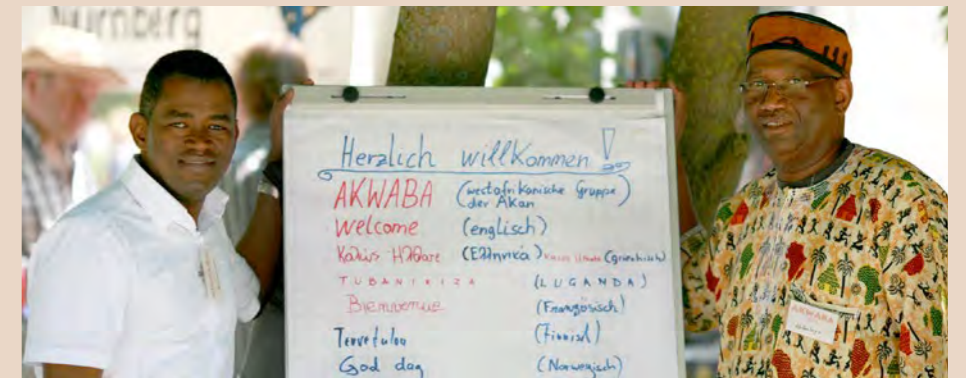 Nürnberg
Herzlich willkommen!
AKWABA (westafrikanische Gruppe
der Akan)
Welcome (englisch)
Καλώς Ηλθατε (Ελληνικά) (griechisch)
TUBANIRIZA (LUGANDA)
Bienvenue (Französisch)
Tervetuloa (Finnisch)
God dag (Norwegisch)
AKWABA